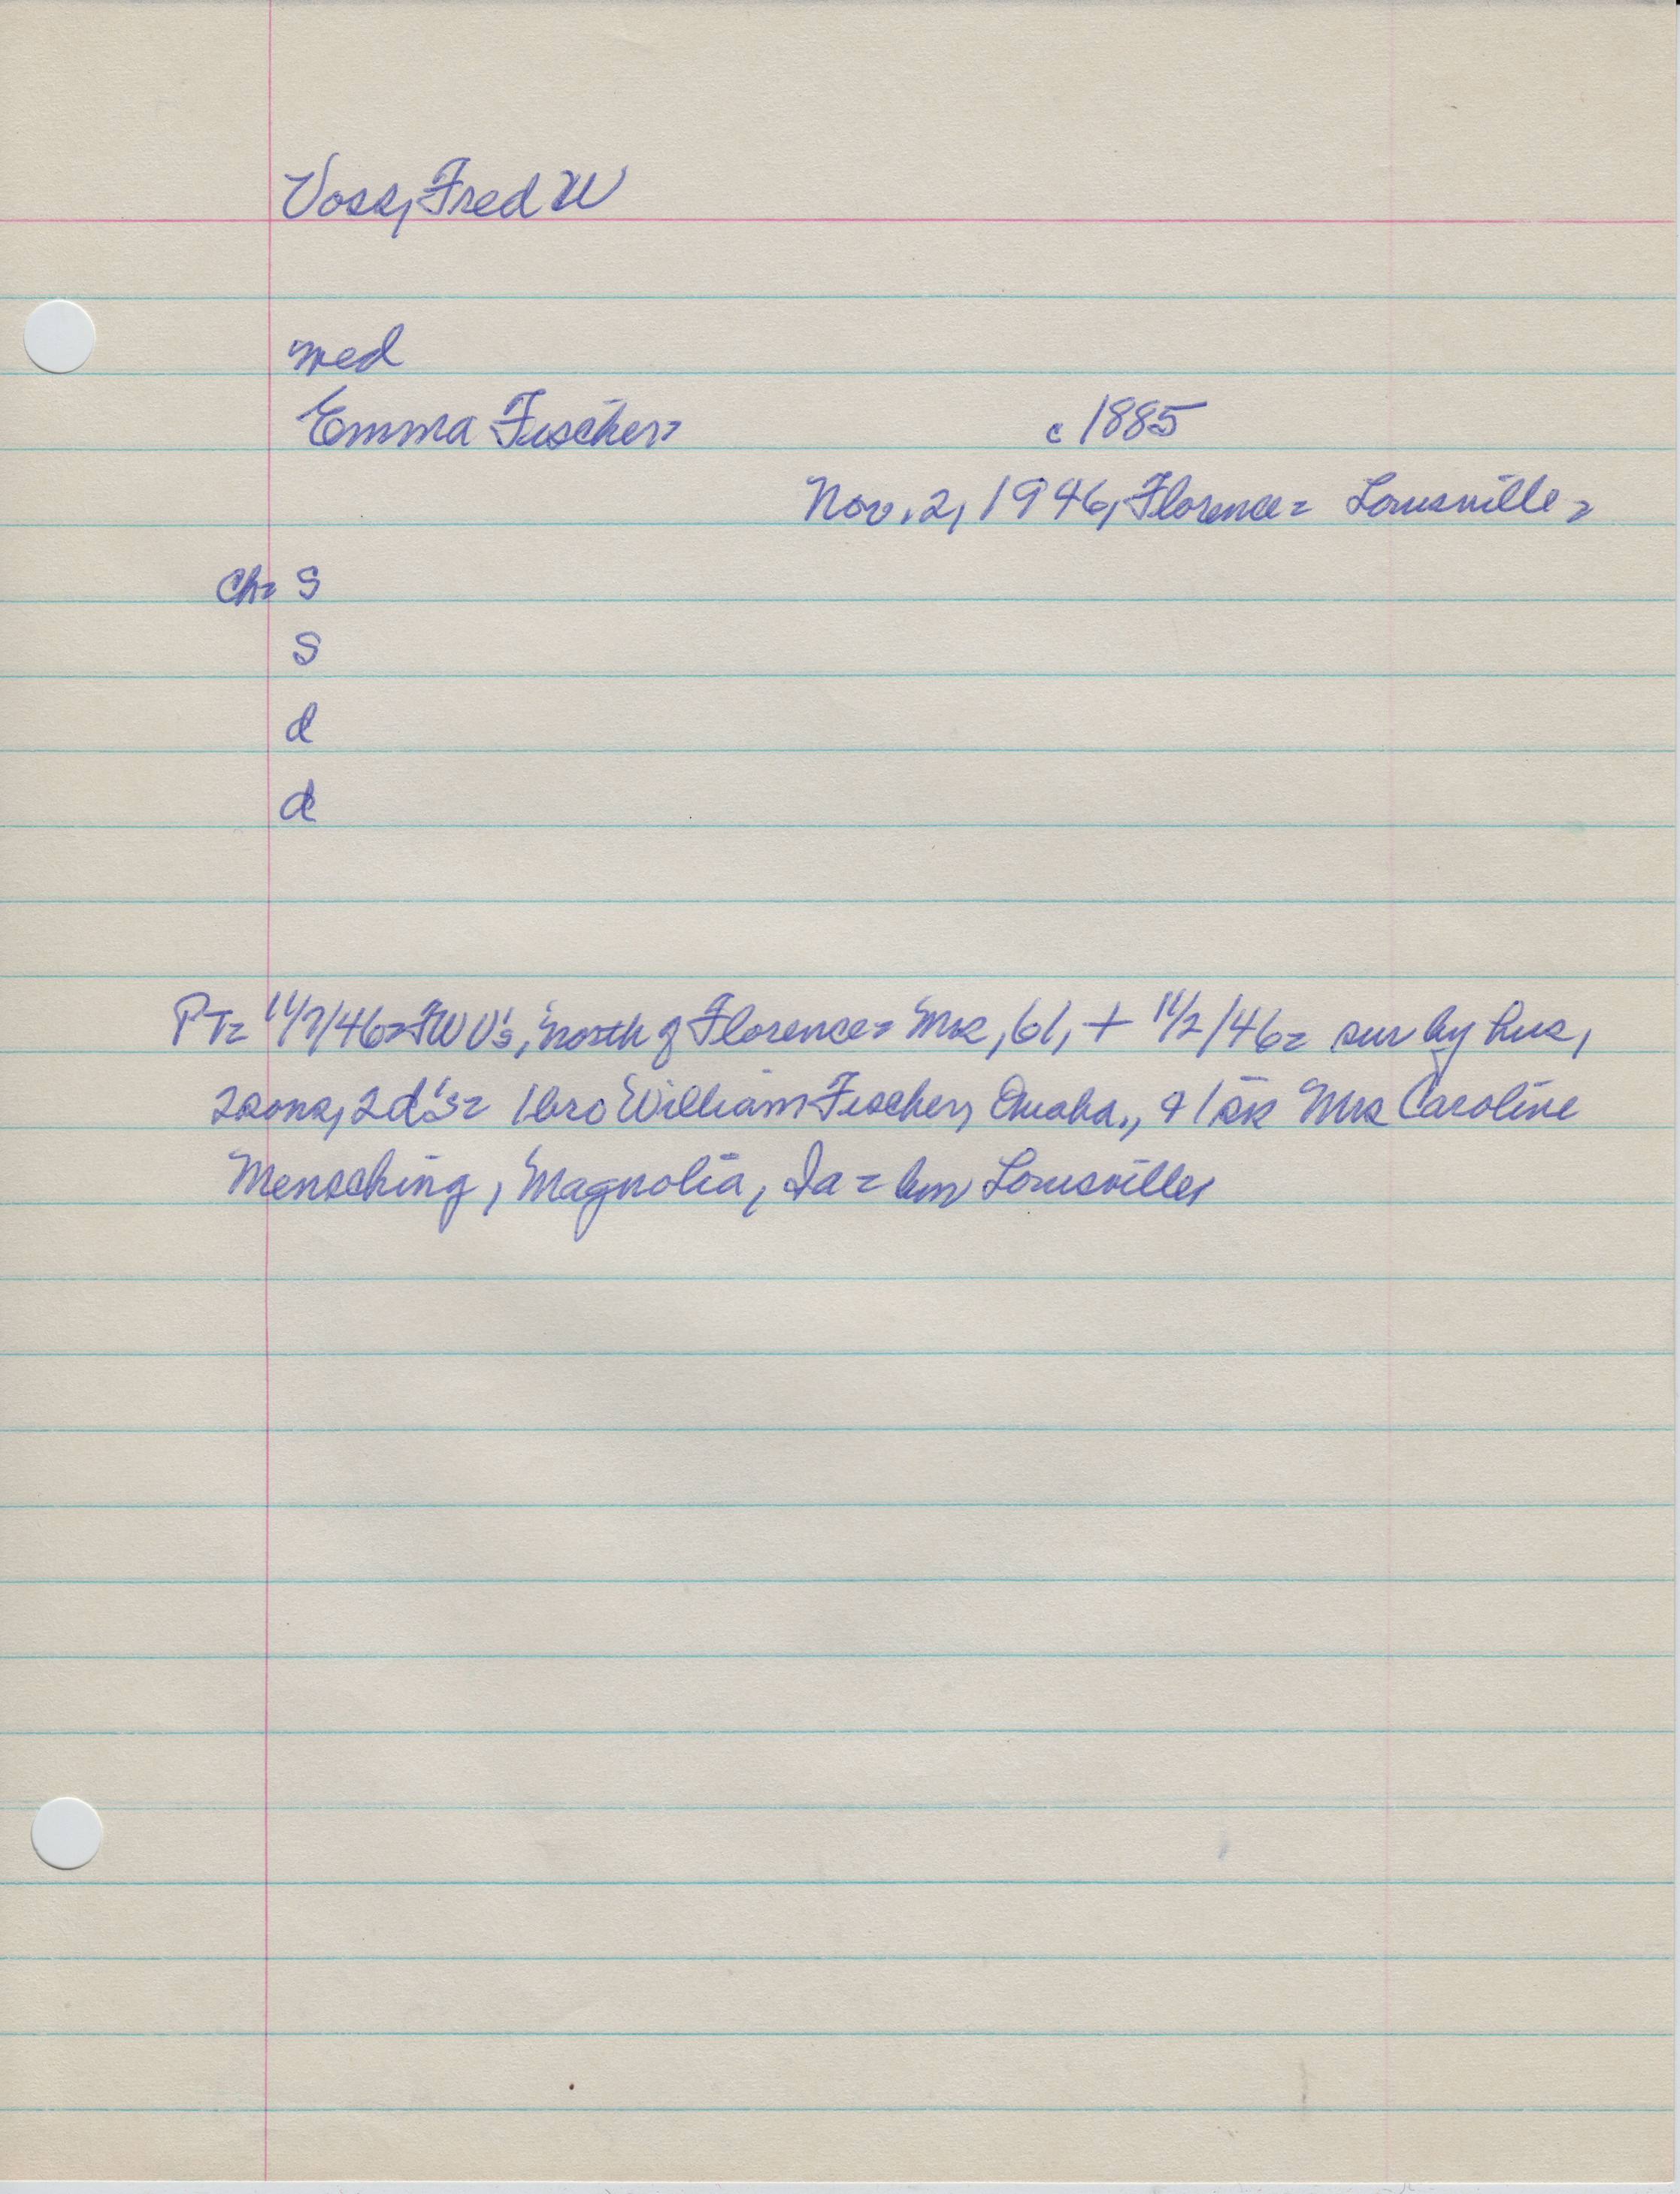 Voss, Fred W
med
Emma Fischer= c 1885
Nov. 2, 1946, Florence= Louisville=
Ch= S
S
d
d
PT= 11/7/46= FWV's, north of Florence= Mrs, 61, + 11/2/46= sur by hus,
2 sons, 2 d's= 1 bro William Fischer, Omaha., & 1 sis Mrs Caroline
Mensching, Magnolia, Ia= bur Louisville